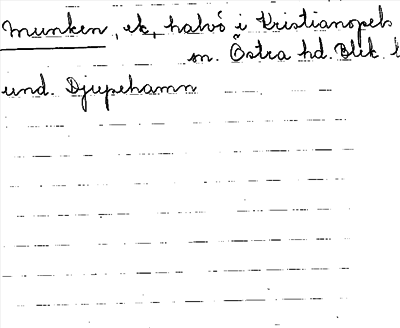 Munken, ek, halvö i Kristianopels
sn. Östra hd. Blek. l
und. Djupehamn